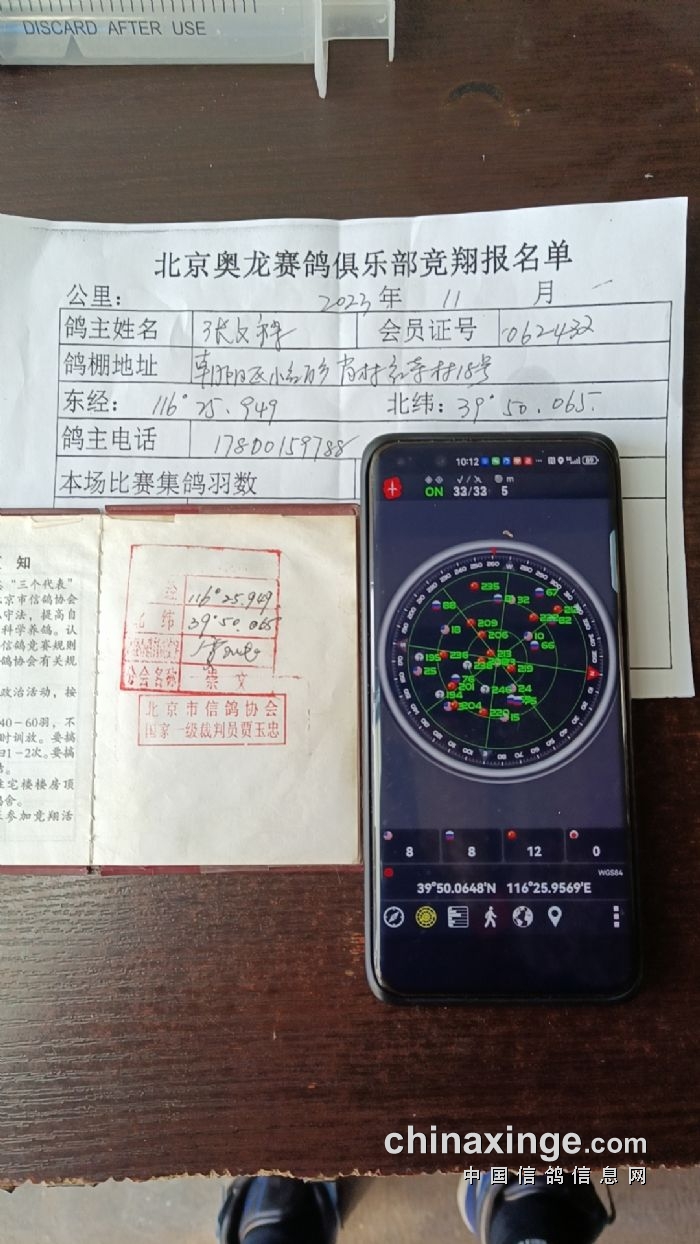 DISCARD AFTER USE
北京奥龙赛鸽俱乐部竞翔报名单
公里： 2023年 11 月
鸽主姓名 张文祥 会员证号 062432
鸽棚地址 朝阳区小红门乡 村18号
东经： 116°25.949 北纬：39°50.065.
鸽主电话 17800159788
本场比赛集鸽羽数
知
"三个代表"
京市信鸽协会
守法，提高自
科学养鸽。认
信鸽竞赛规则
鸽协会有关规
政治活动，按
40－60羽，不
时训放。要搞
日1－2次。要搞
住宅楼楼房顶
鸽舍。
参加竞翔活
经 116°25.949
北纬 39°50.065
分会名称 崇文
北京市信鸽协会
国家一级裁判员贾玉忠
10:12
ON 33/33 5 m
8 8 12 0
WGS84
39°50.0648'N 116°25.9569'E
chinaxinge.com
中国信鸽信息网